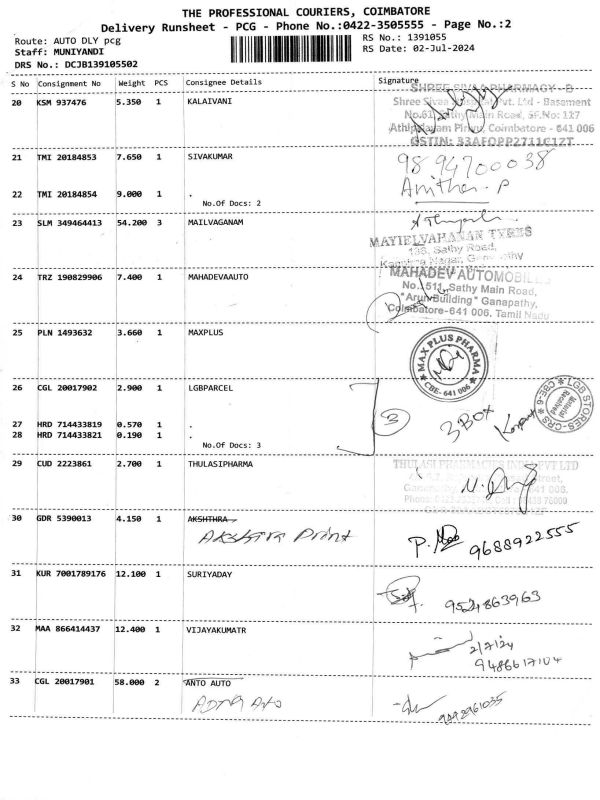 THE PROFESSIONAL COURIERS, COIMBATORE
Delivery Runsheet - PCG - Phone No.:0422-3505555 - Page No.:2
Route: AUTO DLY pcg
RS No.: 1391055
Staff: MUNIYANDI
RS Date: 02-Jul-2024
DRS No.: DCJB139105502
S No Consignment No Weight PCS Consignee Details Signature
20 KSM 937476 5.350 1 KALAIVANI
SHREE SIVAA PHARMACY - B
Shree Sivaa Hospital Pvt. Ltd - Basement
No.61, Sathy Main Road, SF.No: 117
Coimbatore - 641 006
21 TMI 20184853 7.650 1 SIVAKUMAR
98 94700038
Anitha. P
22 TMI 20184854 9.000 1 .
No.Of Docs: 2
23 SLM 349464413 54.200 3 MAILVAGANAM
MAYIELVAHANAN TYRES
136, Sathy Road,
24 TRZ 190829906 7.400 1 MAHADEVAAUTO
MAHADEV AUTOMOBILES
No. 1511, Sathy Main Road,
"Arun Building" Ganapathy,
Coimbatore-641 006, Tamil Nadu
25 PLN 1493632 3.660 1 MAXPLUS
MAX PLUS PHARMA
CBE- 641 006
26 CGL 20017902 2.900 1 LGBPARCEL
3
3 Box
LGB STORES-CRS
CBE-6
Material Received
27 HRD 714433819 0.570 1 .
28 HRD 714433821 0.190 1 .
No.Of Docs: 3
29 CUD 2223861 2.700 1 THULASIPHARMA
THULASI PHARMACIES INDIA PVT LTD
30 GDR 5390013 4.150 1 AKSHTHRA
Print
9688922555
31 KUR 7001789176 12.100 1 SURIYADAY
9524863963
32 MAA 866414437 12.400 1 VIJAYAKUMATR
2/7/24
9486617104
33 CGL 20017901 58.000 2 ANTO AUTO